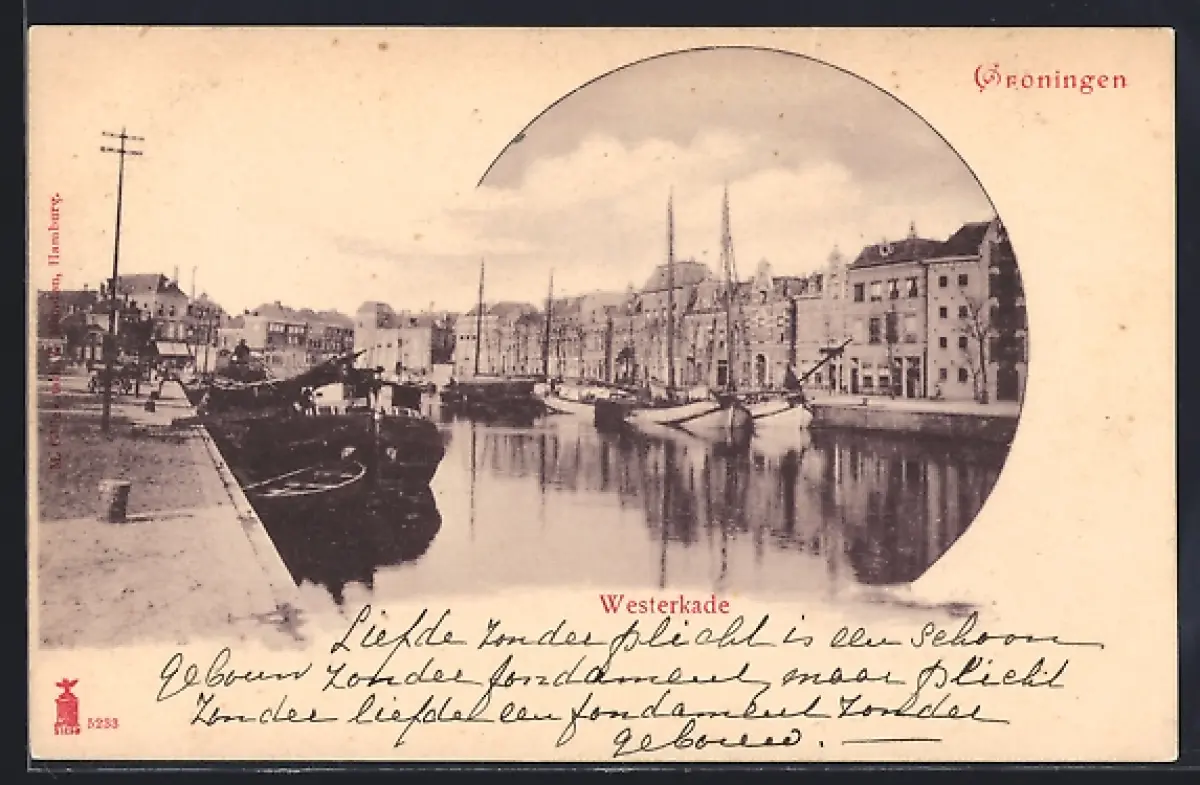 Groningen
Hamburg.
Westerkade
Liefde zonder plicht is een schoon
gebouw zonder fondament, maar plicht
zonder liefde een fondament zonder
gebouw. —
5233